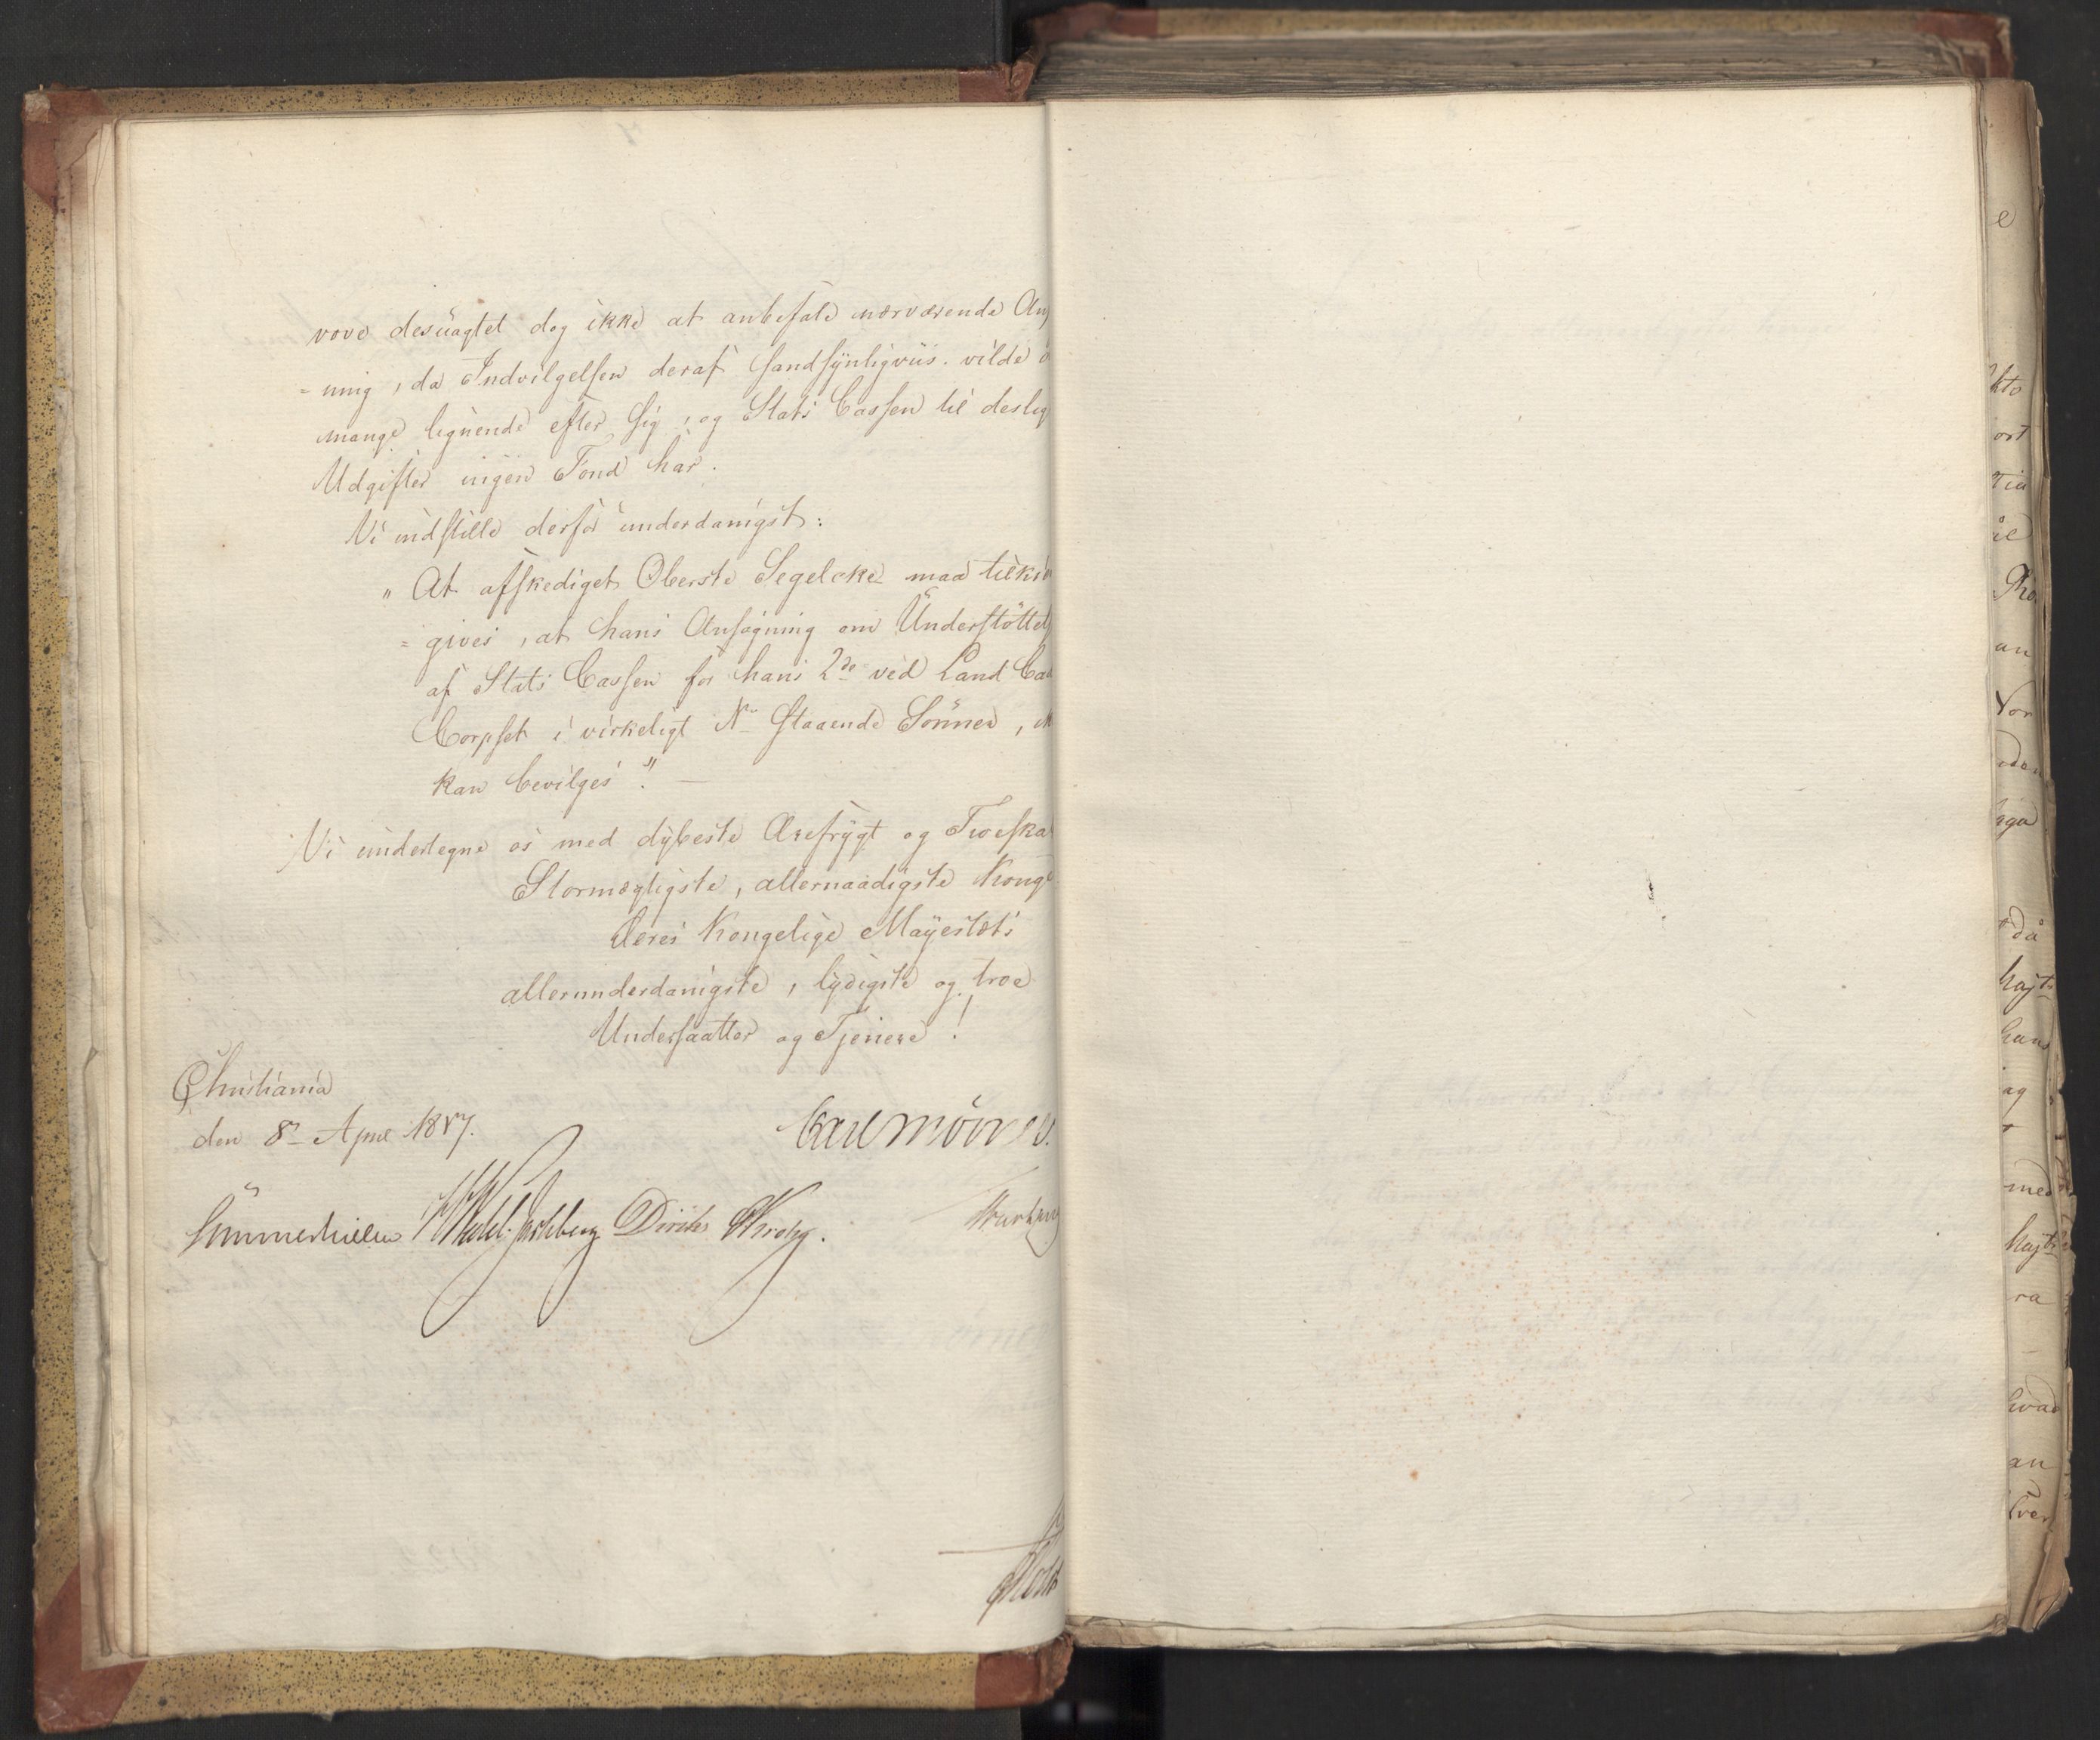 vove desuagtet dog ikke at anbefale nærværende An
= ning, da Indvilgelsen deraf sandsynligviis vilde
mange lignende efter sig, og Stats Cassen til deslig
Udgifter ingen Fond har.
Vi indstille derfor underdanigst:
" At afskediget Oberste Segelcke maa tilkie
= gives, at hans Ansøgning om Understøttel
af Stats Cassen for hans 2de ved Land Cad
Corpset i virkeligt No staaende Sønner, i
kan bevilges". —
Vi undertegne os med dybeste Ærefrygt og Troeska
Stormægtigste, allernaadigste Konge
Deres Kongelige Mayestæts
allerunderdanigste, lydigste og troe
Undersaatter og Tjenere!
Christiania
den 8de April 1817.
Carl Mörner.
Sommerhielm Wedel-Jarlsberg Diriks Krohg.
Holst
e
kto
ort
Tia
il
Pho
an
Vor
eden
iga
da
hajts
hans
ag
t
med
hajts
ra
hvad
an